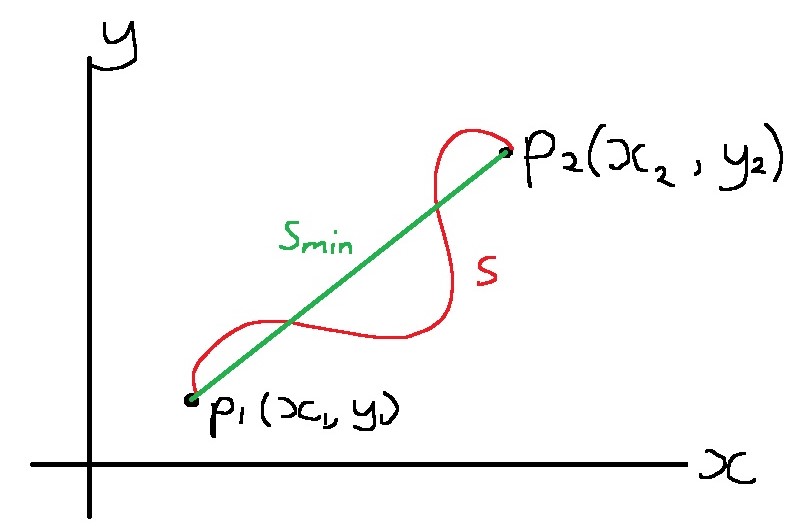 y
P₂(x₂, y₂)
Smin
S
P₁(x₁, y₁)
x